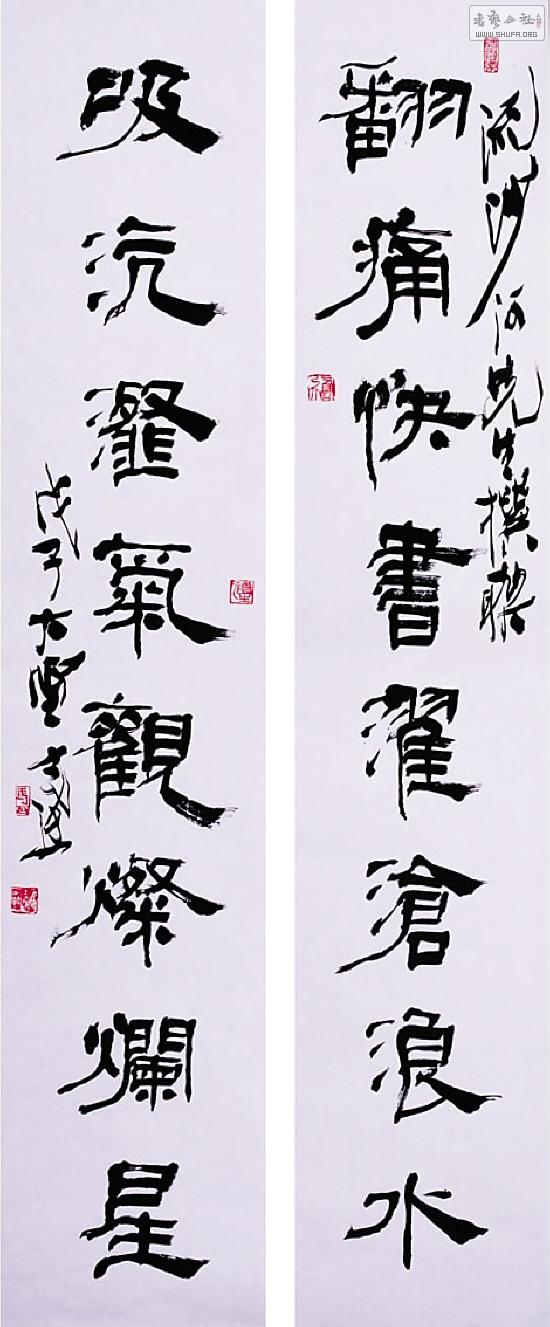 书艺公社
WWW.SHUFA.ORG
流沙河先生撰聯
翻痛快書濯滄浪水
吸沆瀣氣觀燦爛星
戊子